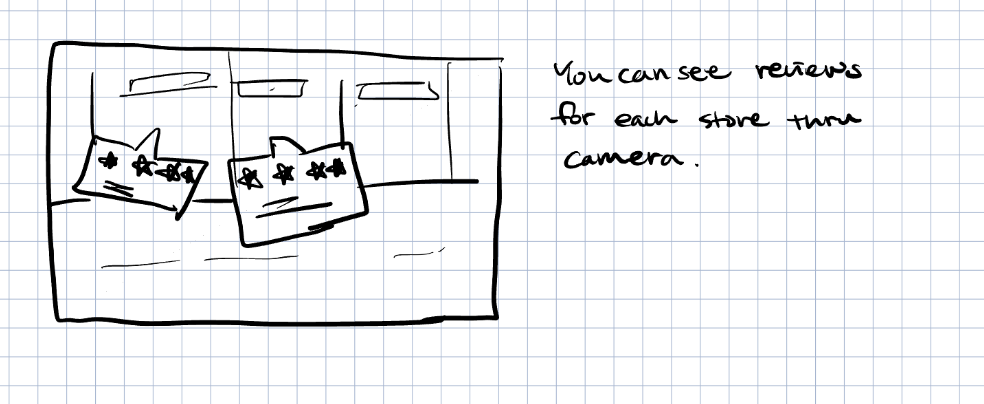 You can see reviews
for each store thru
camera.